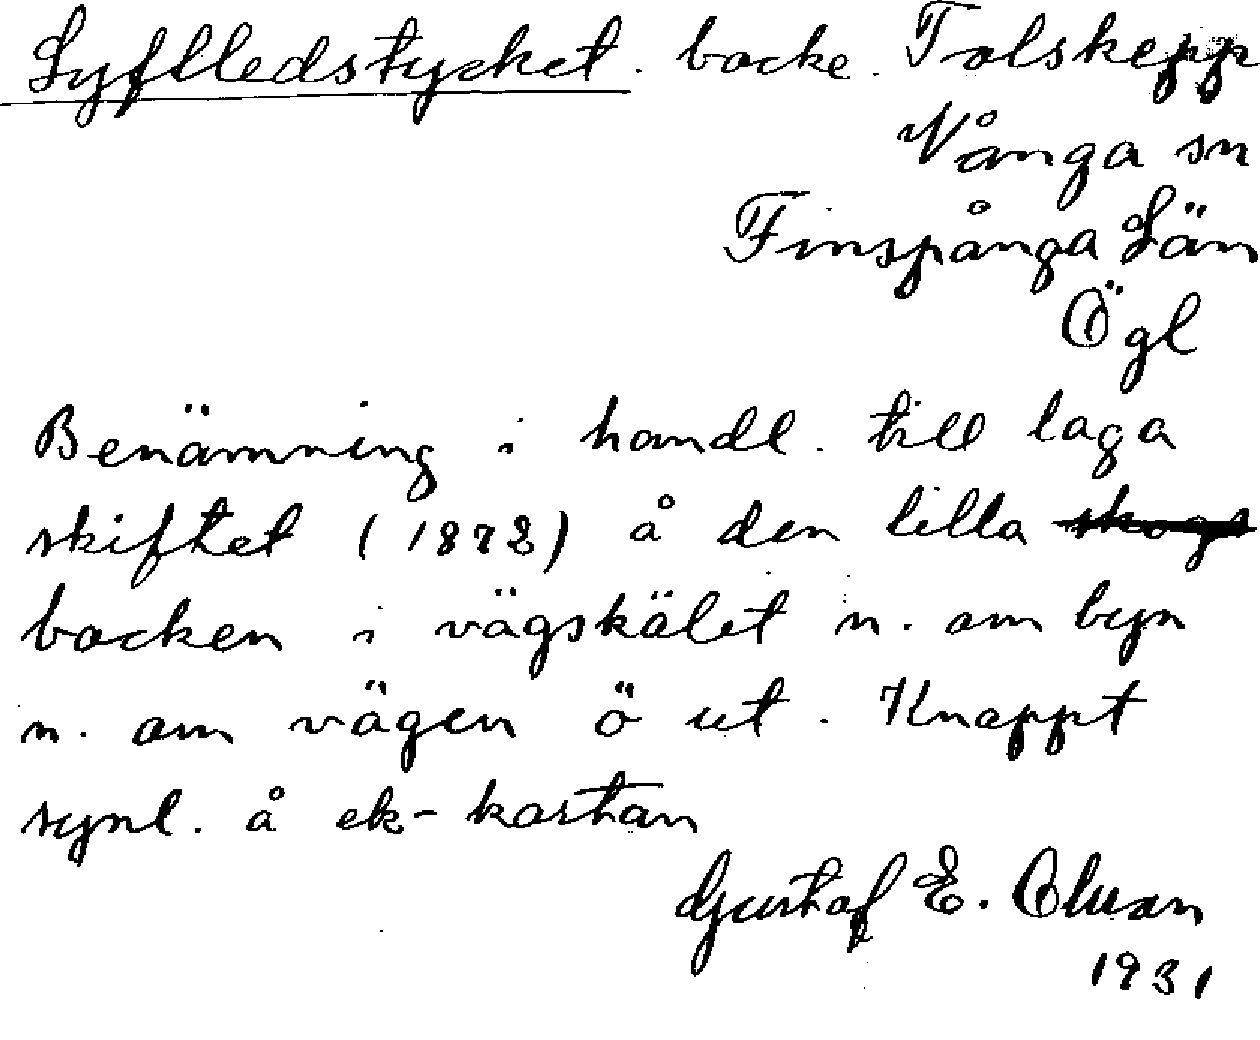 Lyflledstycket. backe. Tolskepp
Vånga sn
Finspånga Län
Ögl
Benämning i handl. till laga
skiftet (1872) å den lilla skogs
backen i vägskälet n. om byn
n. om vägen ö ut. Knappt
synl. å ek-kartan
Gustaf E. Olsson
1931